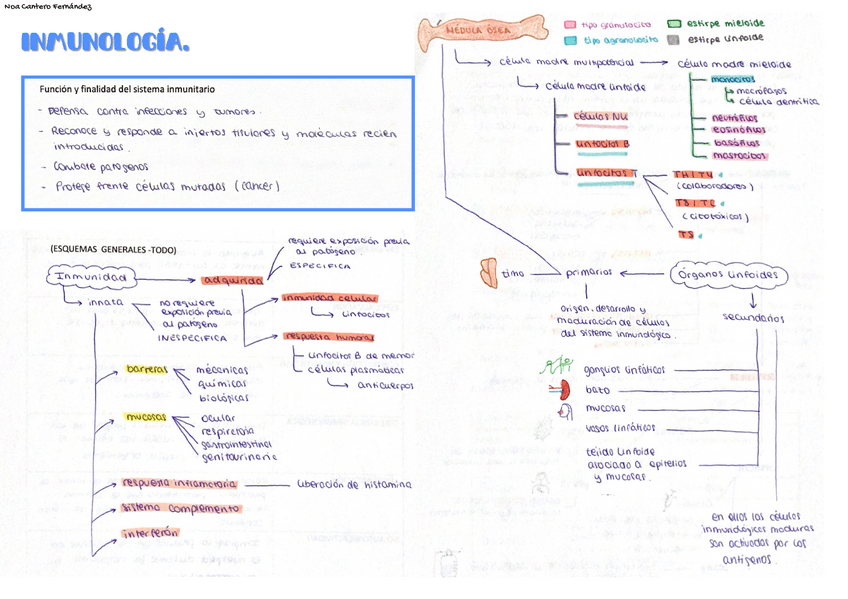 Noa Cantero Fernández
INMUNOLOGÍA.
Función y finalidad del sistema inmunitario
- Defensa contra infecciones y tumores.
- Reconoce y responde a injertos titulares y moléculas recién
introducidas.
- Combate patógenos
- Protege frente células mutadas (cancer)
(ESQUEMAS GENERALES -TODO)
Inmunidad
adquirida
requiere exposición previa
al patógeno.
ESPECIFICA
innata
no requiere
exposición previa
al patógeno
INESPECIFICA
inmunidad celular
linfocitos
respuesta humoral
linfocitos B de memor
células plasmáticas
anticuerpos
barreras
mecánicas
químicas
biológicas
mucosas
ocular
respiratoria
gastrointestinal
genitourinaria
respuesta inflamatoria
liberación de histamina
sistema complemento
interferón
MÉDULA ÓSEA
tipo granulocito
estirpe mieloide
tipo agranulocito
estirpe linfoide
célula madre multipotencial
célula madre mieloide
célula madre linfoide
monocitos
macrófagos
célula dentrítica
células NK
linfocitos B
linfocitos T
neutrófilos
eosinófilos
basófilos
mastocitos
TH / T4
(colaboradores)
TS / TC
(citotóxicos)
TS
timo
primarios
Órganos linfoides
origen, desarrollo y
maduración de células
del sistema inmunológico.
secundarios
ganglios linfáticos
bazo
mucosas
vasos linfáticos
tejido linfoide
asociado a epitelios
y mucosas.
en ellos las células
inmunológicas maduras
son activadas por los
antígenos.